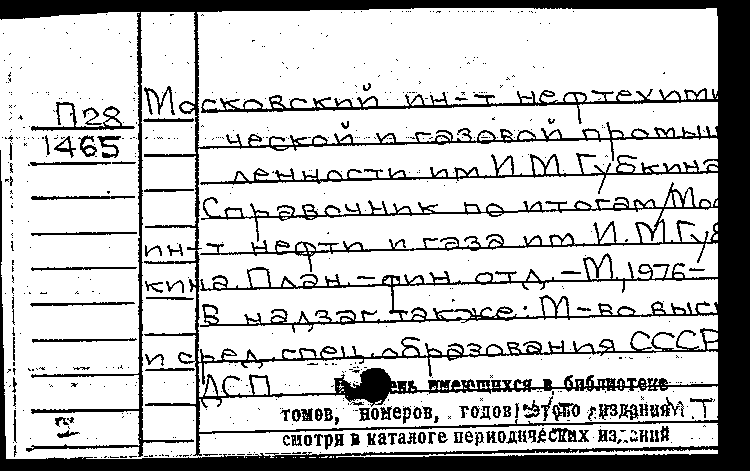 П28 Московский ин-т нефтехими
1465 ческой и газовой промыш
ленности им И.М.Губкина
Справочник по итогам/Мос
ин-т нефти и газа им. И.М.Губ
кина. План.-фин. отд.-М, 1976-
В надзаг.также: М-во высш
и сред.спец.образования СССР
ДСП.
имеющихся в библиотеке
томов, номеров, годов этого издания
смотри в каталоге периодических изданий